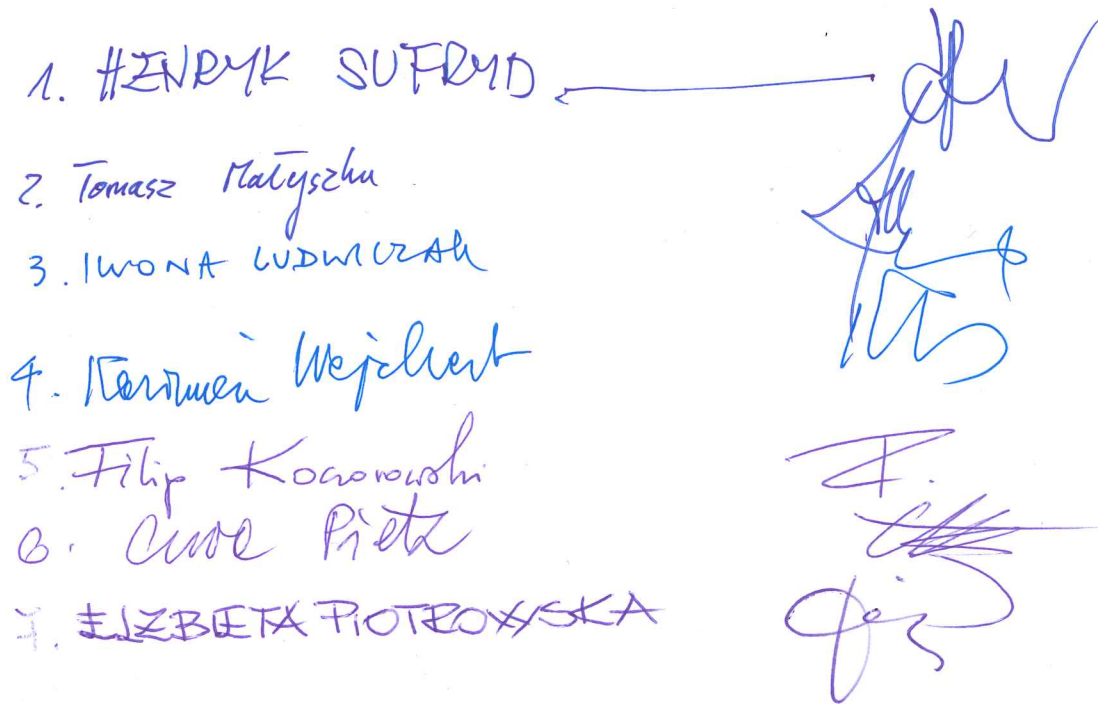 1. HENRYK SUFRYD
2. Tomasz Małyszka
3. IWONA LUDWICZAK
4. Kazimierz Wejchert
5. Filip Kocorowski
6. Ewa Pietz
7. ELŻBIETA PIOTROWSKA